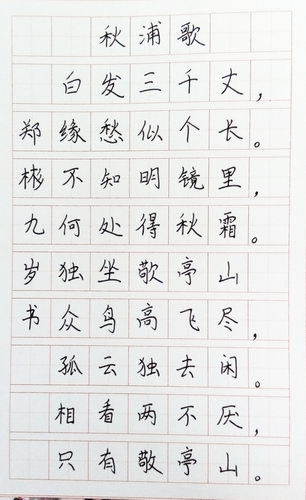 秋浦歌
白发三千丈，
缘愁似个长。
不知明镜里，
何处得秋霜。
独坐敬亭山
众鸟高飞尽，
孤云独去闲。
相看两不厌，
只有敬亭山。
郑彬九岁书